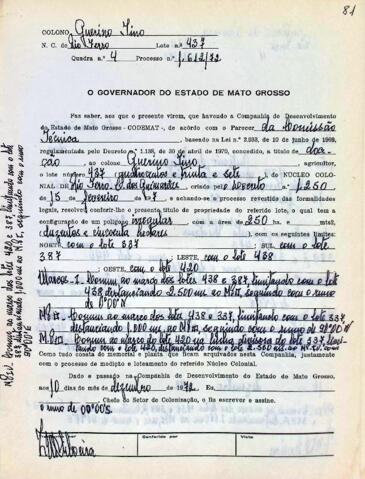 81
COLONO Querino Tino
N. C. de Rio Ferro Lote n.º 437
Quadra n.º 4 Processo n.º 1.612/72
O GOVERNADOR DO ESTADO DE MATO GROSSO
Faz saber, aos que o presente virem, que havendo a Companhia de Desenvolvimento
do Estado de Mato Grosso - CODEMAT-, de acôrdo com o Parecer da Comissão
Técnica, baseado na Lei n.º 2.933, de 10 de junho de 1969,
regulamentada pelo Decreto n.º 1.138, de 30 de abril de 1970, concedido, a título de doa-
ção ao colono Querino Tino, agricultor,
o lote número 437 quatrocentos e trinta e sete do NÚCLEO COLO-
NIAL DE Rio Ferro. C. dos Guimarães, criado pelo Decreto n.º 1.250
de 15 de fevereiro de e achando-se o processo revestido das formalidades
legais, resolveu conferir-lhe o título de propriedade do referido lote, o qual tem a
configuração de um polígono irregular com a área de 250 hs.
duzentos e cincoenta hectares), com os seguintes limites:
NORTE com o lote 337; SUL com o lote
387 LESTE, com o lote 438
OESTE, com o lote 420
Marcos-I. Comum ao marco dos lotes 438 e 387, limitando com o lote
438, distanciando 2.500 ms. ao MºII, seguindo com o rumo
de 0º00'N
MºII. Comum ao marco dos lotes 438 e 337, limitando com o lote 337,
distanciando 1.000 ms. ao MºIII, seguindo com o rumo de 90º00'
MºIII. Comum ao marco do lote 420 na linha divisora do lote 337, limi-
tando com o lote 420, distanciando 2.500 ms. ao MºIV, com
Como tudo consta do memorial e planta que ficam arquivados nesta Companhia, juntamente
com o processo de medição e loteamento do referido Núcleo Colonial.
Dado e passado na Companhia de Desenvolvimento do Estado de Mato Grosso,
aos 10 dias do mês de dezembro de 1972. Eu,
Chefe do Setor de Colonização, o fiz escrever e assino.
o rumo de 0º00'S.
Conferido por
Visto
MºIV. Comum ao marco dos lotes 420 e 387, limitando com o lote
387, distanciando 1.000 ms. ao MºI, seguindo com o rumo
90º00'E